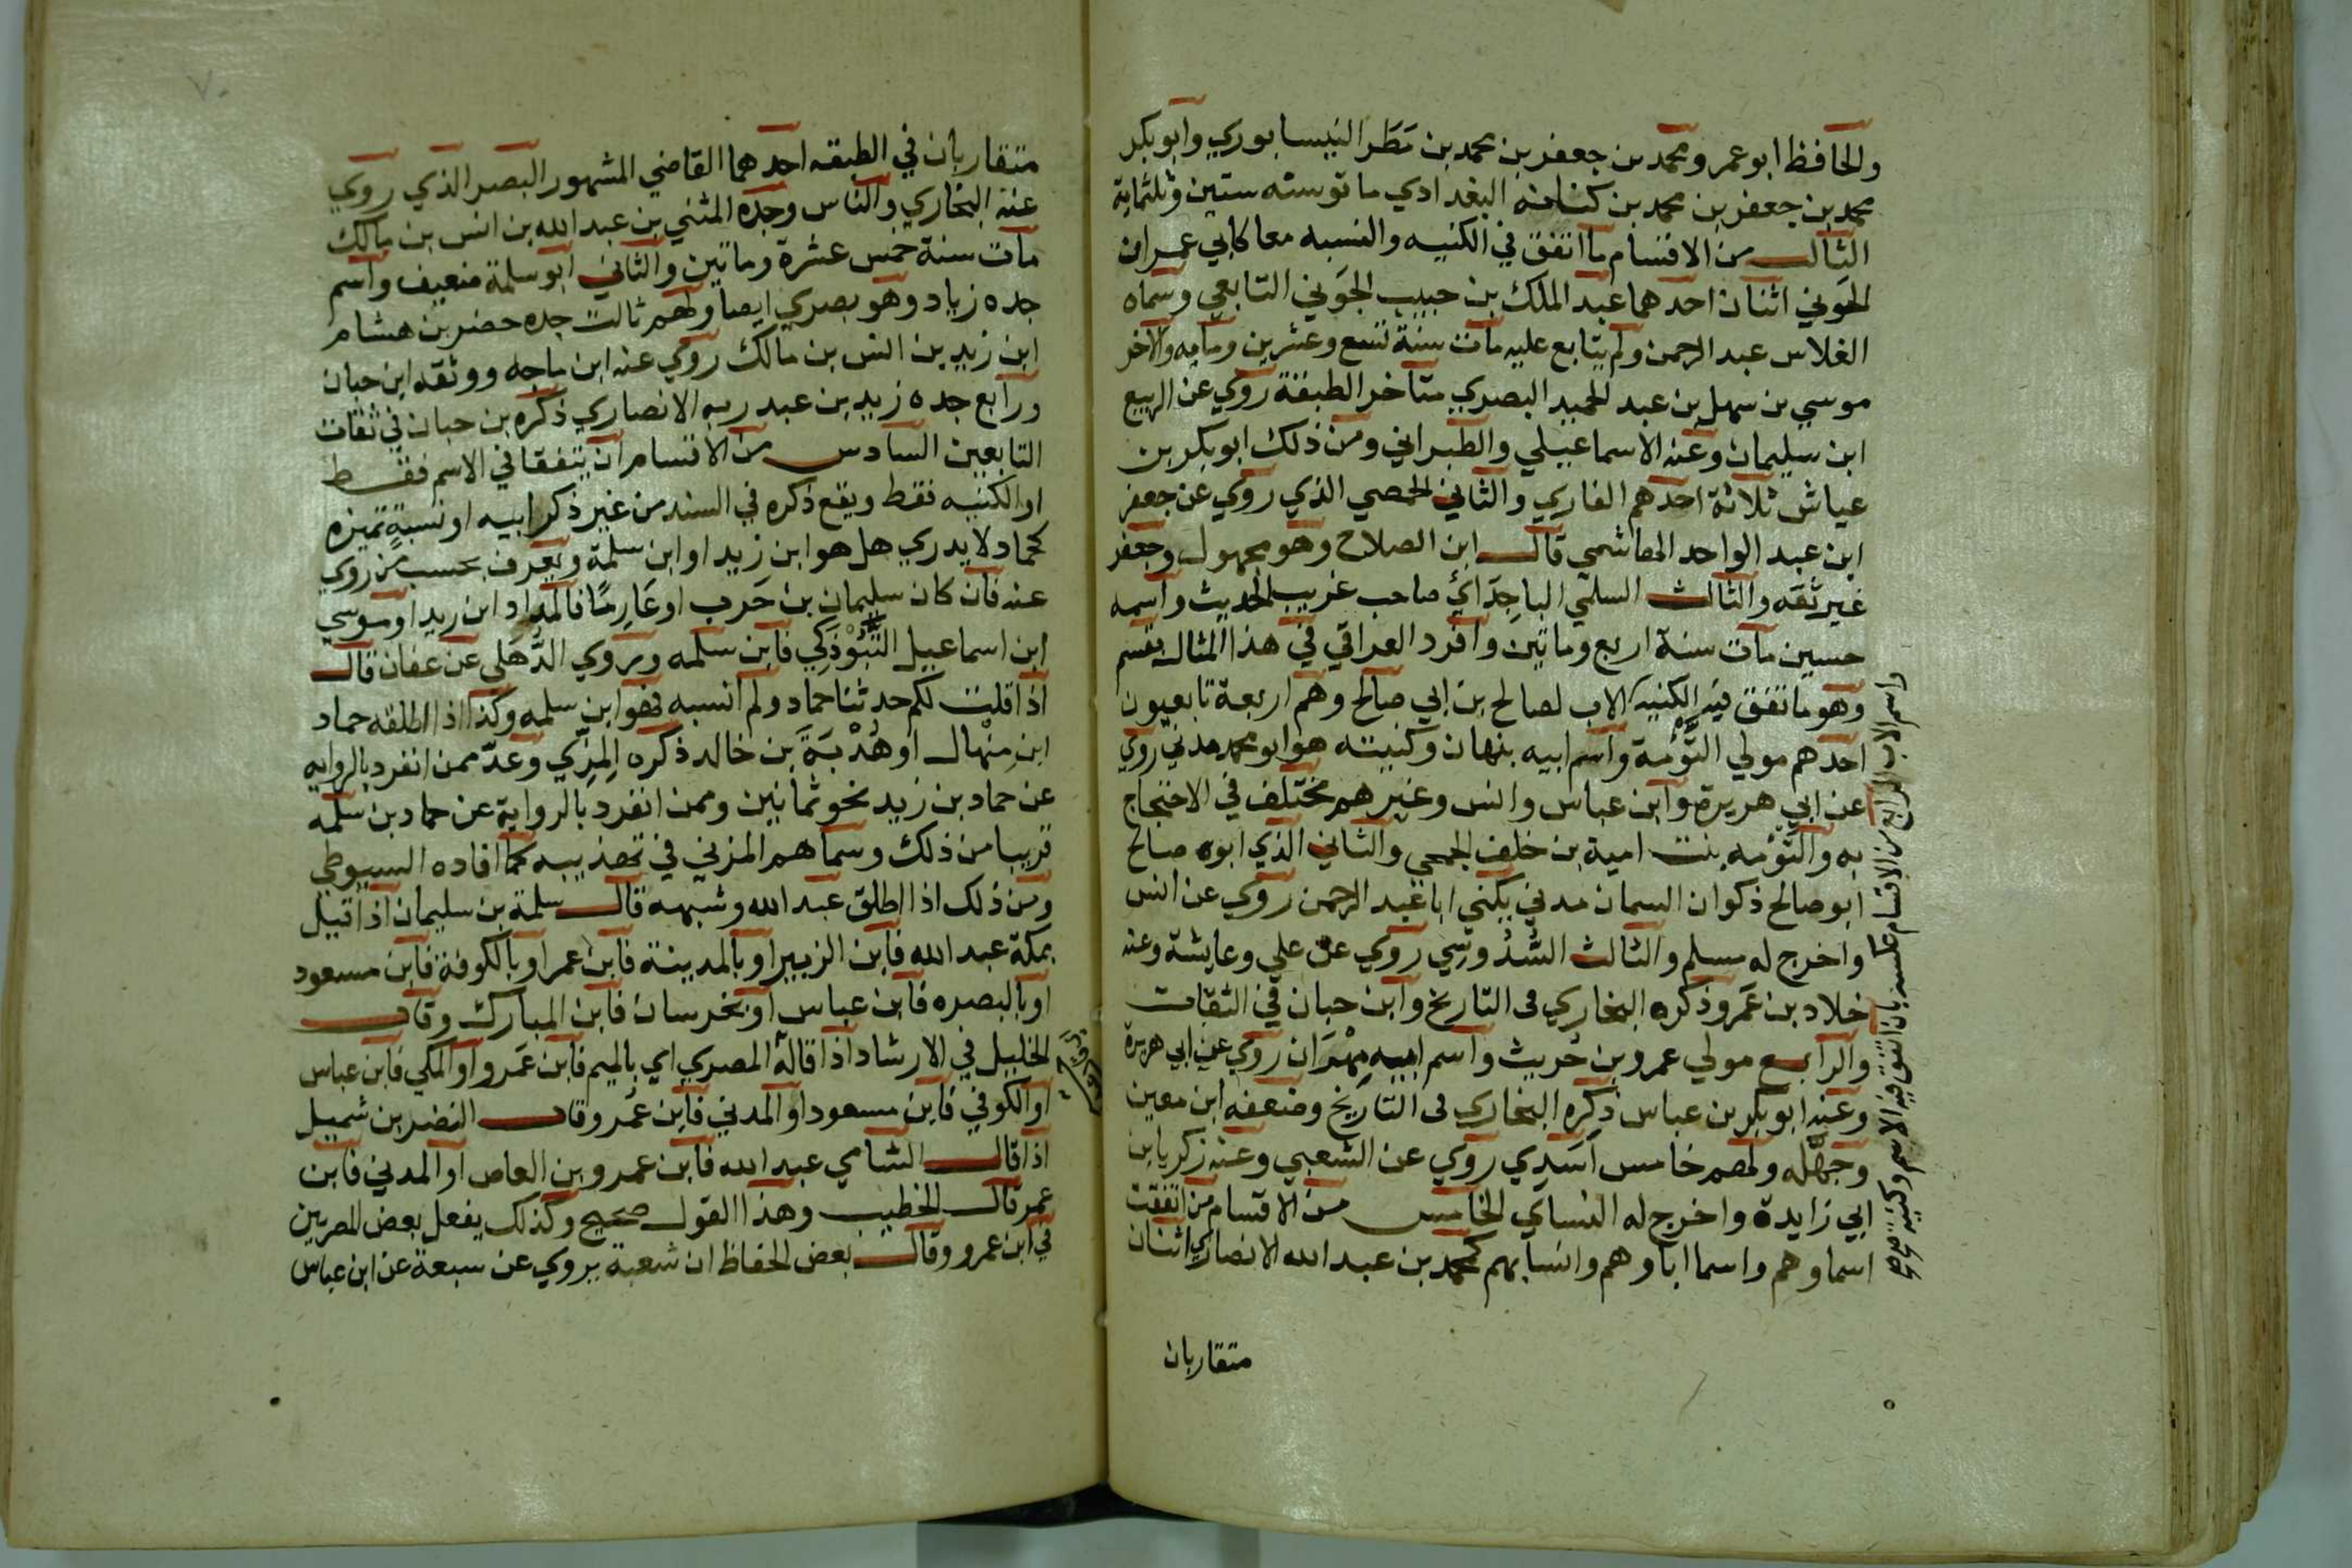 والحافظ ابو عمر ومحمد بن جعفر بن محمد بن مَطَر النيسابوري وابو بكر
محمد بن جعفر بن محمد بن كنانه البغدادي ماتو سنه ستين وثلثماية
الثالث من الاقسام ما اتفق في الكنيه والنسبه معا كابي عمران
الجوني اثنان احدهما عبد الملك بن حبيب الجَوني التابعي وسماه
الفلاس عبد الرحمن ولم يتابع عليه مات سنة تسع وعشرين ومايه والاخر
موسي بن سهل بن عبد الحميد البصري متاخر الطبقة روي عن الربيع
ابن سليمان وعنه الاسماعيلي والطبراني ومن ذلك ابو بكر بن
عياش ثلاثة احدهم القاري والثاني الحمصي الذي روي عن جعفر
ابن عبد الواحد الهاشمي قال ابن الصلاح وهو مجهول وجعفر
غير ثقه والثالث السلمي الباجِدَائي صاحب غريب الحديث واسمه
حسين مات سنة اربع وماتين وافرد العراقي في هذا المثال بقسم
وهو ما تفق فيه الكنيه الاب لصالح بن ابي صالح وهم اربعة تابعيون
احدهم مولي التَّوْمة واسم ابيه بنهان وكنيته هو ابو محمد مدني روي
عن ابي هريرة وابن عباس وانس وغيرهم مختلف في الاحتجاج
به والتَوْمه بنت امية بن خلف الجمحي والثاني الذي ابوه صالح
ابو صالح ذكوان السمان مدني يكني ابا عبد الرحمن روي عن انس
واخرج له مسلم والثالث السُّدُوسِي روي عن علي وعايشة وعنه
خلاد بن عَمَرو ذكره البخاري في التاريخ وابن حبان في الثقات
والرابع مولي عمرو بن حُريث واسم ابيه مِهْرَان روي عن ابي هريرة
وعنه ابو بكر بن عباس ذكره البخاري في التاريخ وضعفه ابن معين
وجهّله ولهم خامس اَسَدِي روي عن الشعبي وعنه زكريا بن
ابي زايدة واخرج له النساي الخامس من الاقسام من اتفقت
اسماوهم واسما اباوهم وانسابهم كمحمد بن عبد الله الانصاري اثنان
متقاربان
الرابع من الاقسام عكسه بان اتفق فيه الاسم وكنيته
واسم الاب
متقاربان في الطبقه احدهما القاضي المشهور البصر الذي روي
عنه البخاري والناس وجده المثني بن عبد الله بن انس بن مالك
مات سنة خمس عشرة وماتين والثاني ابو سلمة ضعيف واسم
جده زياد وهو بصري ايضا ولهم ثالث جده حضر بن هشام
ابن زيد بن انس بن مالك روي عنه ابن ماجه ووثقه ابن حبان
ورابع جده زيد بن عبد ربه الانصاري ذكره بن حبان في ثقات
التابعين السادس من الاقسام ان يتفقا في الاسم فقط
او الكنيه فقط ويقع ذكره في السند من غير ذكر ابيه او نسبةٍ تميزه
كحماد لا يدري هل هو ابن زيد او ابن سلمة ويعرف بحسب من روي
عنه فان كان سليمان بن حَرب او عَارِمًا فالمراد ابن زيد او موسي
ابن اسماعيل التَّبُوْذَكِي فابن سلمه ويروي الذُّهَلي عن عفان قال
اذا قلت لكم حدثنا حماد ولم انسبه فهو ابن سلمه وكذا اذا اطلقه حماد
ابن مِنْهال او هُدْبَةَ بن خالد ذكره المِزّي وعدّ ممن انفرد بالروايه
عن حماد بن زيد نحو ثمانين وممن انفرد بالرواية عن حماد بن سلمه
قريبا من ذلك وسماهم المزني في تهذيبه كما افاده السيوطي
ومن ذلك اذا اطلق عبد الله وشبهه قال سلمة بن سليمان اذا قيل
بمكة عبد الله فابن الزبير او بالمدينة فابن عمر او بالكوفة فابن مسعود
او بالبصره فابن عباس او بخرسان فابن المبارك وقال
الخليل في الارشاد اذا قاله المصري اي بالميم فابن عَمَرو او المكي فابن عباس
او الكوفي فابن مسعود او المدني فابن عُمر وقال النضر بن شميل
اذا قال الشامي عبد الله فابن عمرو بن العاص او المدني فابن
عمر قال الخطيب وهذا القول صحيح وكذلك يفعل بعض المصريين
في ابن عمرو وقال بعض الحفاظ ان شعبة يروي عن سبعة عن ابن عباس